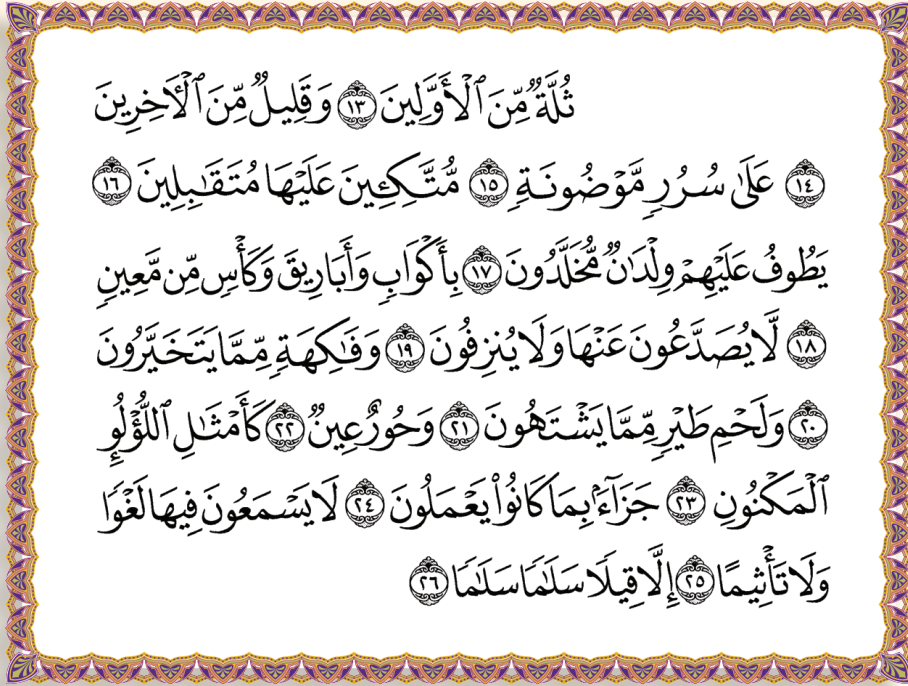 ثُلَّةٌ مِّنَ ٱلْأَوَّلِينَ ١٣ وَقَلِيلٌ مِّنَ ٱلْأَخِرِينَ
١٤ عَلَىٰ سُرُرٍ مَّوْضُونَةٍ ١٥ مُّتَّكِـِٔينَ عَلَيْهَا مُتَقَـٰبِلِينَ ١٦
يَطُوفُ عَلَيْهِمْ وِلْدَٰنٌ مُّخَلَّدُونَ ١٧ بِأَكْوَابٍ وَأَبَارِيقَ وَكَأْسٍ مِّن مَّعِينٍ
١٨ لَّا يُصَدَّعُونَ عَنْهَا وَلَا يُنزِفُونَ ١٩ وَفَـٰكِهَةٍ مِّمَّا يَتَخَيَّرُونَ
٢٠ وَلَحْمِ طَيْرٍ مِّمَّا يَشْتَهُونَ ٢١ وَحُورٌ عِينٌ ٢٢ كَأَمْثَـٰلِ ٱللُّؤْلُؤِ
ٱلْمَكْنُونِ ٢٣ جَزَآءًۢ بِمَا كَانُوا۟ يَعْمَلُونَ ٢٤ لَا يَسْمَعُونَ فِيهَا لَغْوًا
وَلَا تَأْثِيمًا ٢٥ إِلَّا قِيلًا سَلَـٰمًا سَلَـٰمًا ٢٦